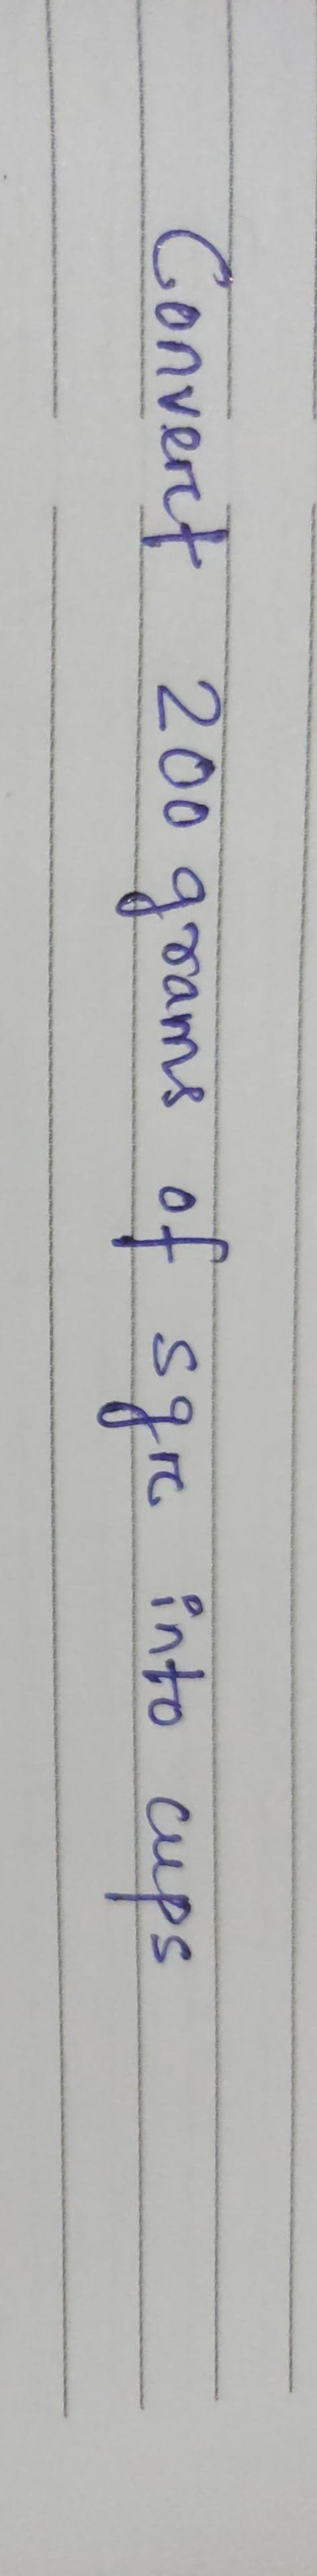 Convert 200 grams of sgr into cups